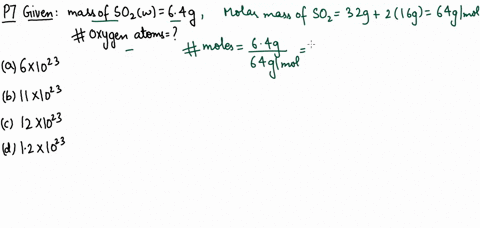 P7 Given: mass of SO₂ (w) = 6.4g, Molar mass of SO₂ = 32g + 2(16g) = 64g/mol
# Oxygen atoms = ?
# moles = 6.4g / 64g/mol =
(a) 6×10²³
(b) 11×10²³
(c) 12×10²³
(d) 1.2×10²³